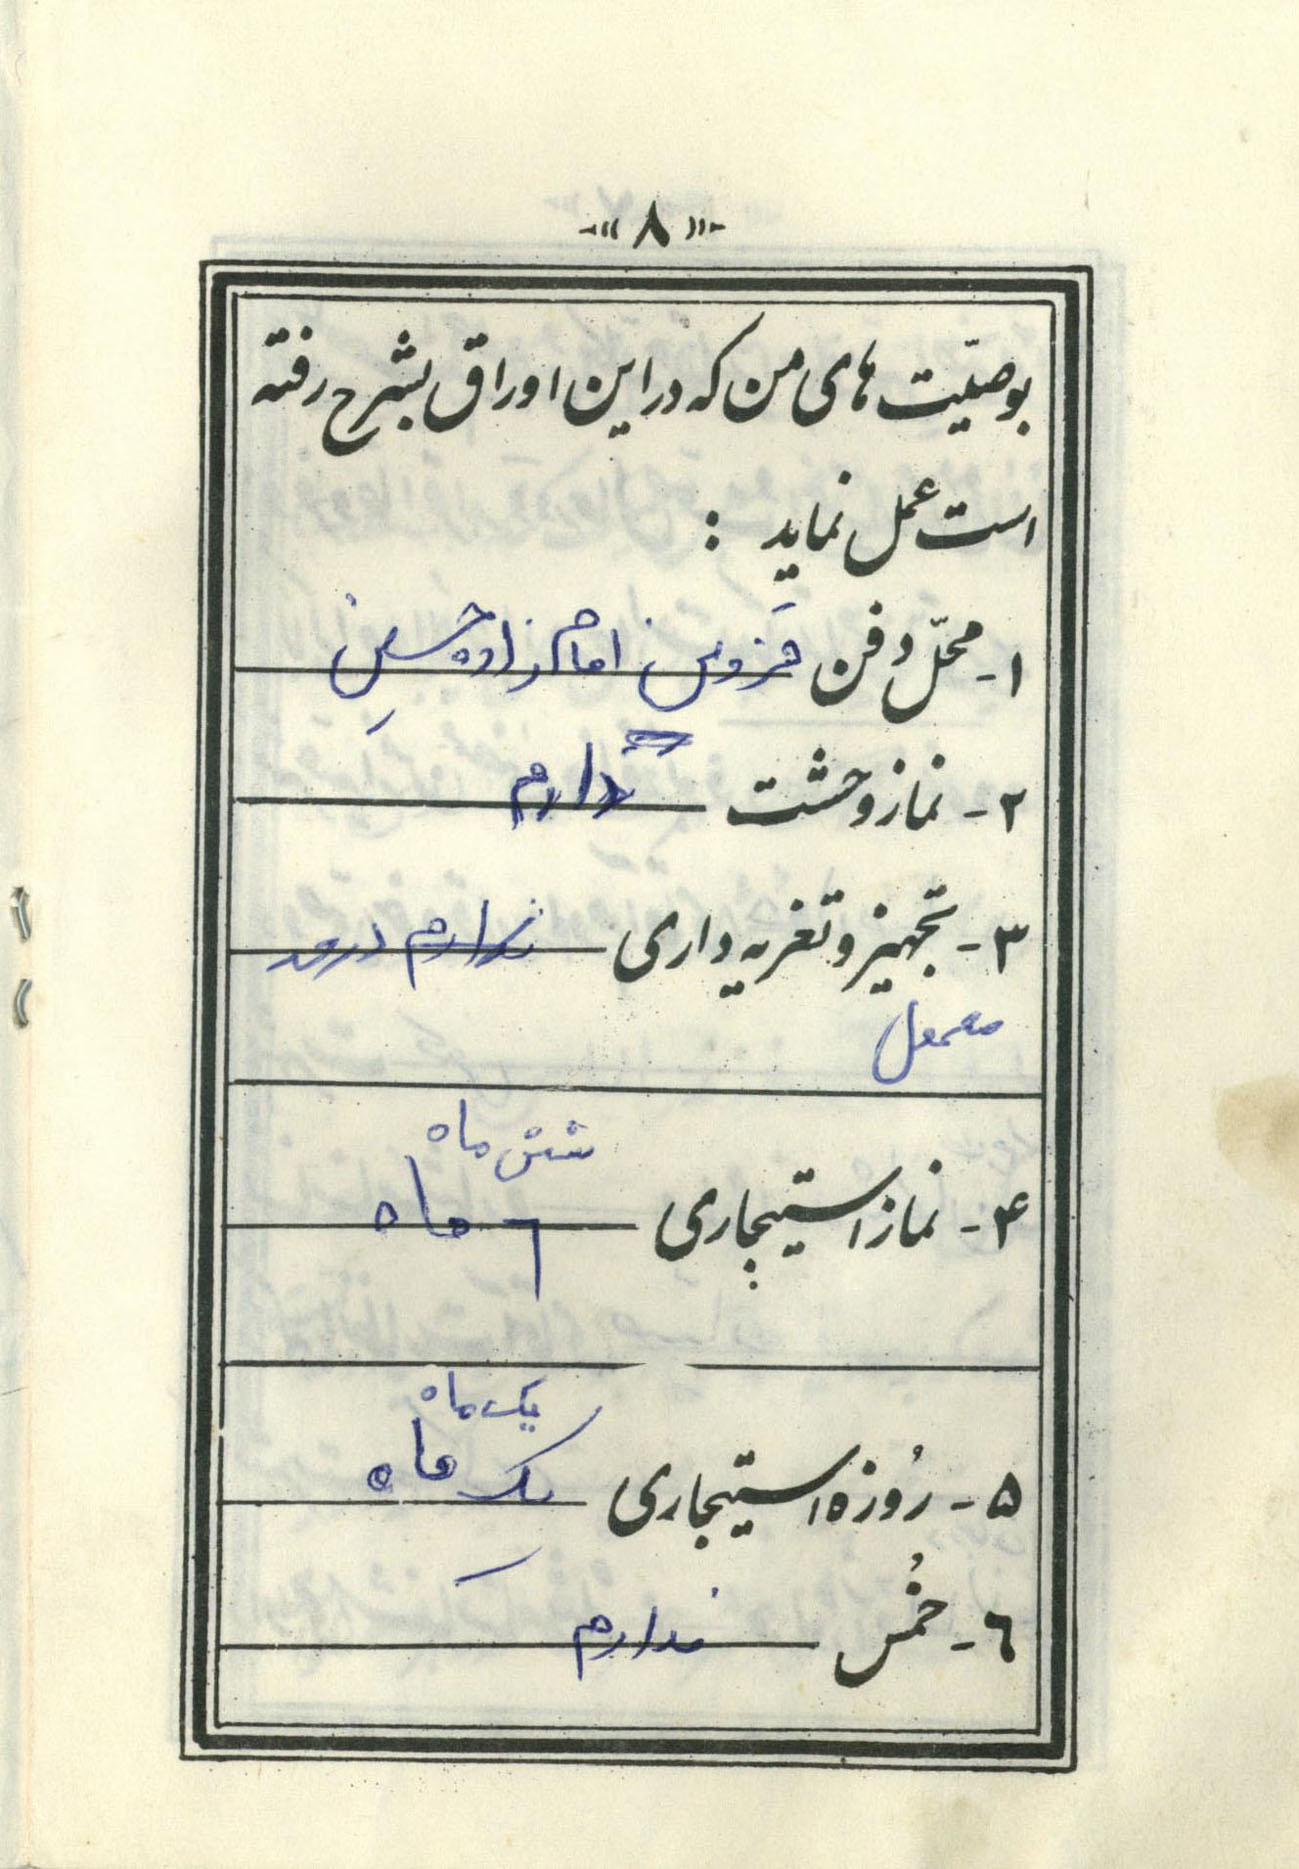 -««۸»»-
بوصیّت های من که در این اوراق بشرح رفته
است عمل نماید :
۱- محلّ دفن قزوین امام زاده حسین
۲- نماز وحشت دارم
۳- تجهیز و تغریه داری ندارم در حد
معمول
شش ماه
۴- نماز استیجاری ٦ ماه
یک ماه
۵- رُوزه استیجاری یک ماه
٦- خُمس ندارم